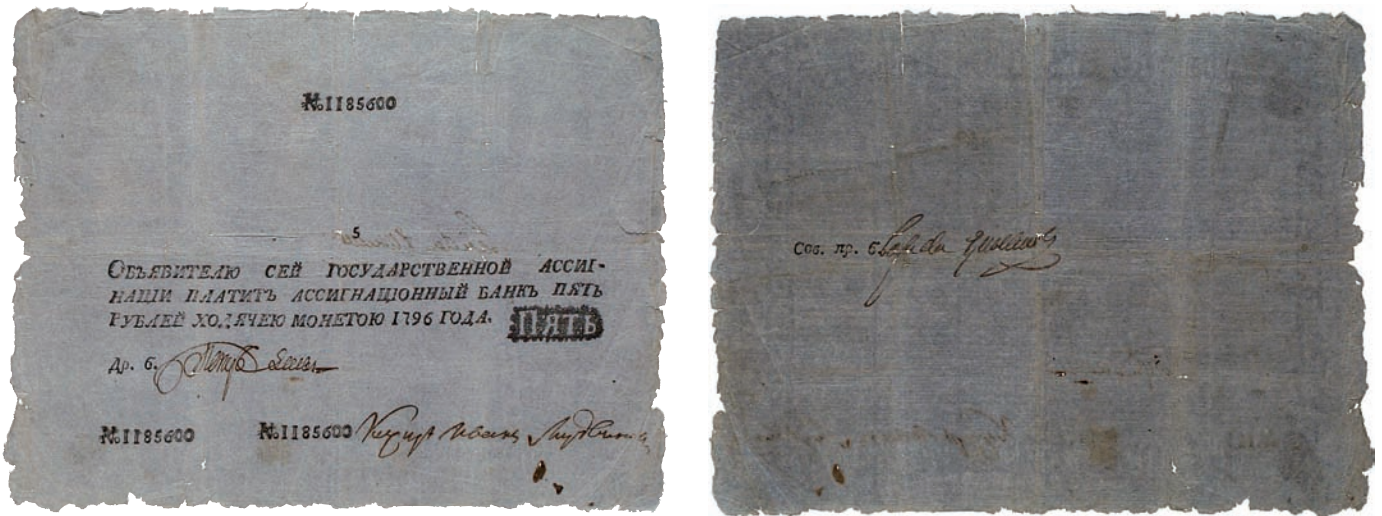 №1185600
5
ОБЪЯВИТЕЛЮ СЕЙ ГОСУДАРСТВЕННОЙ АССИГ-
НАЦIИ ПЛАТИТЪ АССИГНАЦIОННЫЙ БАНКЪ ПЯТЬ
РУБЛЕЙ ХОДЯЧЕЮ МОНЕТОЮ 1796 ГОДА. ПЯТЬ
Др. б.
№1185600 №1185600 Иванъ
Сов. пр. б.